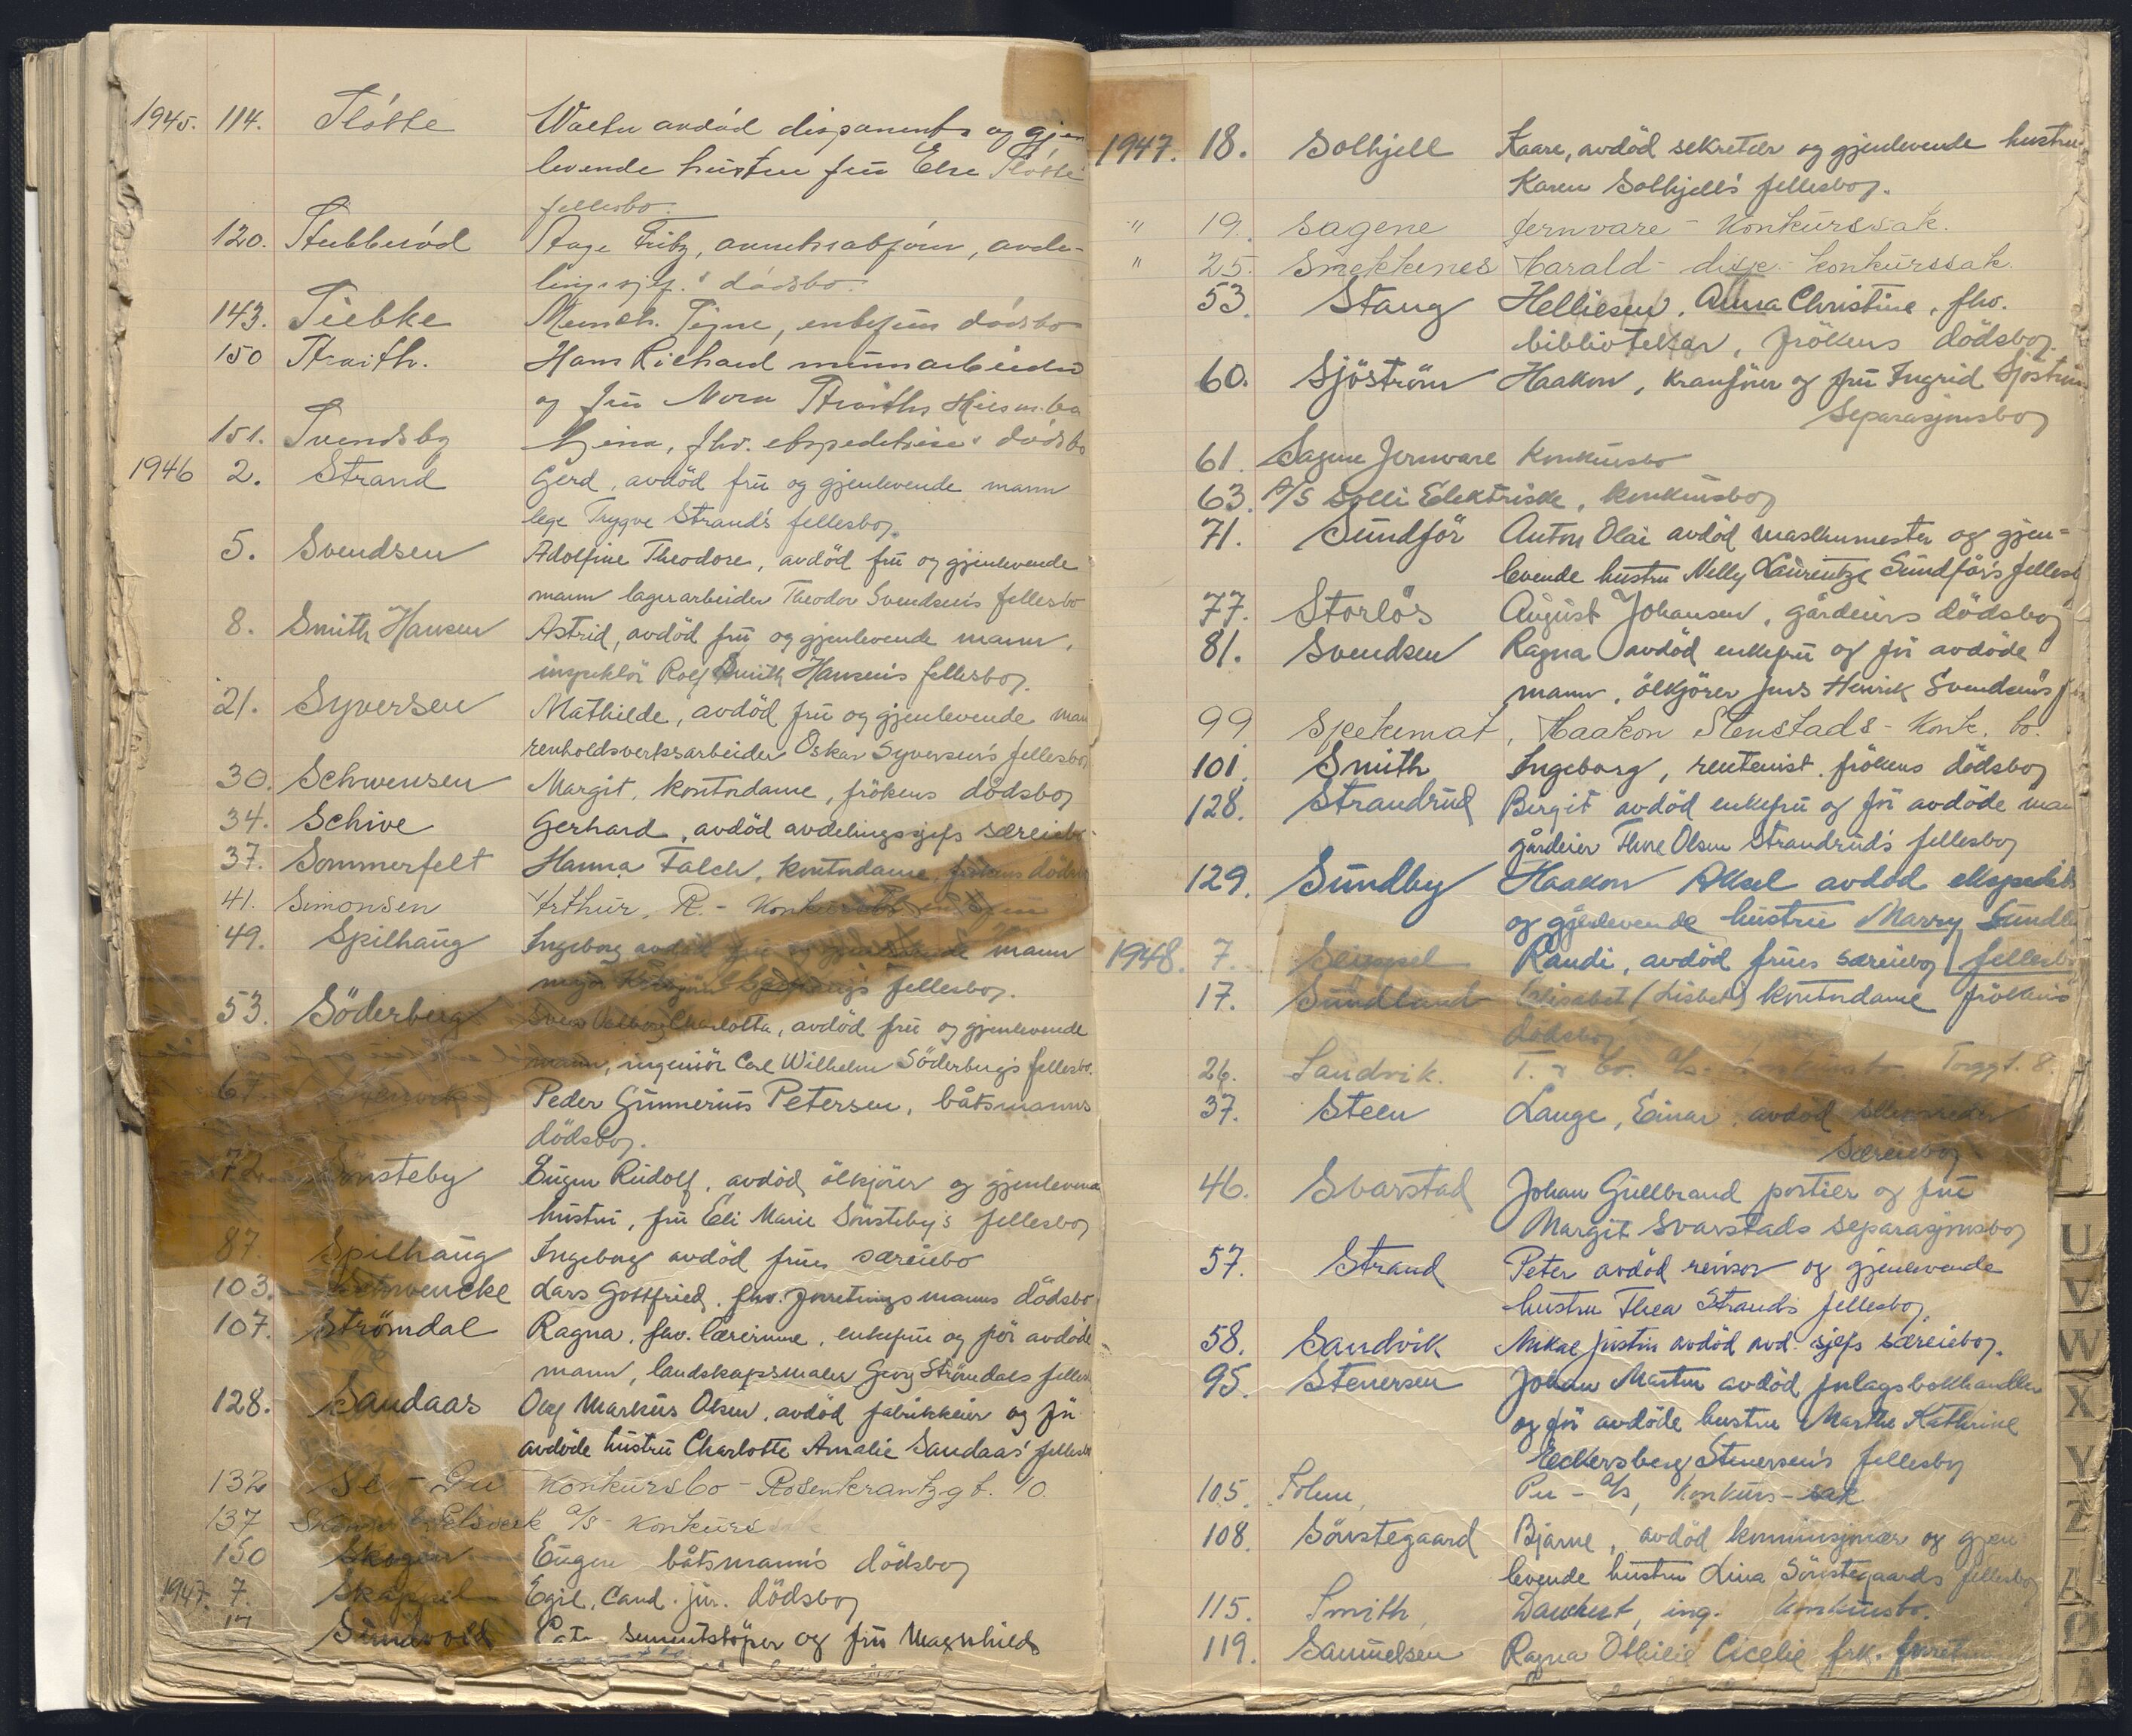 1945. 114. Slótte avdód disponents og gjen
levende hustru fru Else Slótte
fellesbo.
120. Stubberód Aage Fritz, avde-
dódsbo.
143. Siebke enkefrues dódsbo
150 Straith. Hans Richard murarbeider
og fru Nora Straiths
151. Svendsby fhv. ekspeditrise's dódsbo
1946 2. Strand Gerd, avdöd frü og gjenlevende mann
lege Trygve Strand's fellesboj.
5. Svendsen Adolfine Theodore, avdöd frü og gjenlevende
mann lagerarbeider Theodor Svendsen's fellesbo
8. Smith Hansen Astrid, avdöd frü og gjenlevende mann,
inspektör Rolf Smith Hansen's fellesboj.
21. Syversen Mathilde, avdöd frü og gjenlevende man
renholdsverksarbeider Oskar Syversen's fellesboj
30. Schwensen Margit, kontordame, frökens dödsboj
34. Schive Gerhard, avdöd avdelingssjefs særeiebo
37. Sommerfelt Hanna Falch, kontordame, frökens dödsbo
41. Simonsen Arthur, R. - Konkursbo
49. Spilhaüg Ingeborg avdöd frü og gjenlevende mann
major fellesboj.
53. Söderberg Charlotta, avdöd frü og gjenlevende
mann, ingeniör Carl Wilhelm Söderberg's fellesbo.
67. Peder Günnerius Petersen, båtsmanns
dödsboj.
72. Sönsteby Eugen Rüdolf, avdöd ölkjörer og gjenlevende
hüstrü, frü Eli Marie Sönsteby's fellesboj
87. Spilhaüg Ingeborg avdöd frües særeiebo
103. Schwencke Lars Gottfried, fhv. forretningsmanns dödsbo
107. Strömdal Ragna, fhv. lærerinne, enkefrü og för avdöde
mann, landskapsmaler Georg Strömdals felles
128. Sandaas Olaf Markus Olsen, avdöd fabrikkeier og för
avdöde hüstrü Charlotte Amalie Sandaas' fellesbo
132 Konkürsbo - Rosenkrantzgt. 10.
137 A/S - Konkürs
150 Skogen Eugen båtsmann's dödsboj
1947. 7. Skappel Egil, Cand. jür. dödsboj
17 Sündvold sementstöper og frü Magnhilds
1947. 18. Solhjell Kaare, avdöd sekretær og gjenlevende hustru
Karen Solhjell's fellesboj.
" 19. Sagene Jernvare - Konkürssak.
" 25. Snekkenes Harald - disp. - konkürssak.
53. Stang Helliesen, Anna Christine, fhv.
bibliotekar, frökens dödsboj.
60. Sjöström Haakon, kranförer og frü Ingrid Sjöström
separasjonsboj
61. Sagene Jernvare Konkürsbo
63. A/S Solli Elektriske, konkürsboj
71. Sündför Anton Olai avdöd maskinmester og gjen=
levende hustru Nelly Laürentze Sündför's fellesb
77. Storlös August Johansen, gårdeiers dödsboj
81. Svendsen Ragna avdöd enkefrü og för avdöde
mann, ölkjörer Jens Henrik Svendsen's
99. Spekemat, Haakon Stenstads - Konk. bo.
101. Smith Ingeborg, rentenist, frökens dödsboj
128. Strandrüd Bergit avdöd enkefrü og för avdöde man
gårdeier Olsen Strandrüd's fellesboj
129. Sündby Haakon Aksel avdöd ekspedit
og gjenlevende hüstrü Marry Sündb
1948. 7. Randi, avdöd frües særeieboj / fellesb
17. Sündland Elisabet (Lisbet) kontordame frökens
dödsboj
26. Sandvik. T. & Co. A/S. Torggt. 8.
37. Steen Lange, Einar, avdöd
særeieboj
46. Svarstad Johan Güllbrand portier og frü
Margit Svarstads separasjonsboj
57. Strand Peter avdöd revisor og gjenlevende
hustru Thea Strand's fellesboj.
58. Sandvik Mikal Justin avdöd avd. sjefs særeieboj.
95. Stenersen Johan Martin avdöd forlagsbokhandler
og för avdöde hustru Marthe Kathrine
Eckersberg Stenersen's fellesboj
105. A/S, Konkürs-sak
108. Sönstegaard Bjarne, avdöd kommisjonær og gjen
levende hüstrü Lina Sönstegaards fellesboj
115. Smith, ing. konkürsbo.
119. Samüelsen Ragna Othilie Cicelie frk.
U
V
W
X
Y
Z
Æ
Ø
Å